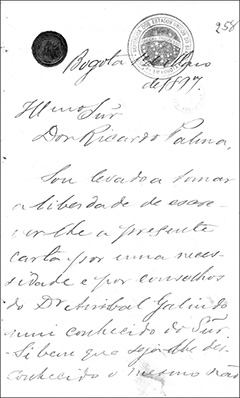 258
Bogotá 1º de Março
de 1897.
Illmo Sñr
Don Ricardo Palma,
Sou levado a tomar
a liberdade de escre-
ver-lhe a presente
carta por uma neces-
sidade e por conselhos
do Dr Anibal Galindo
mui conhecido do Sñr.
Si bem que seja-lhe des-
conhecido o mesmo não